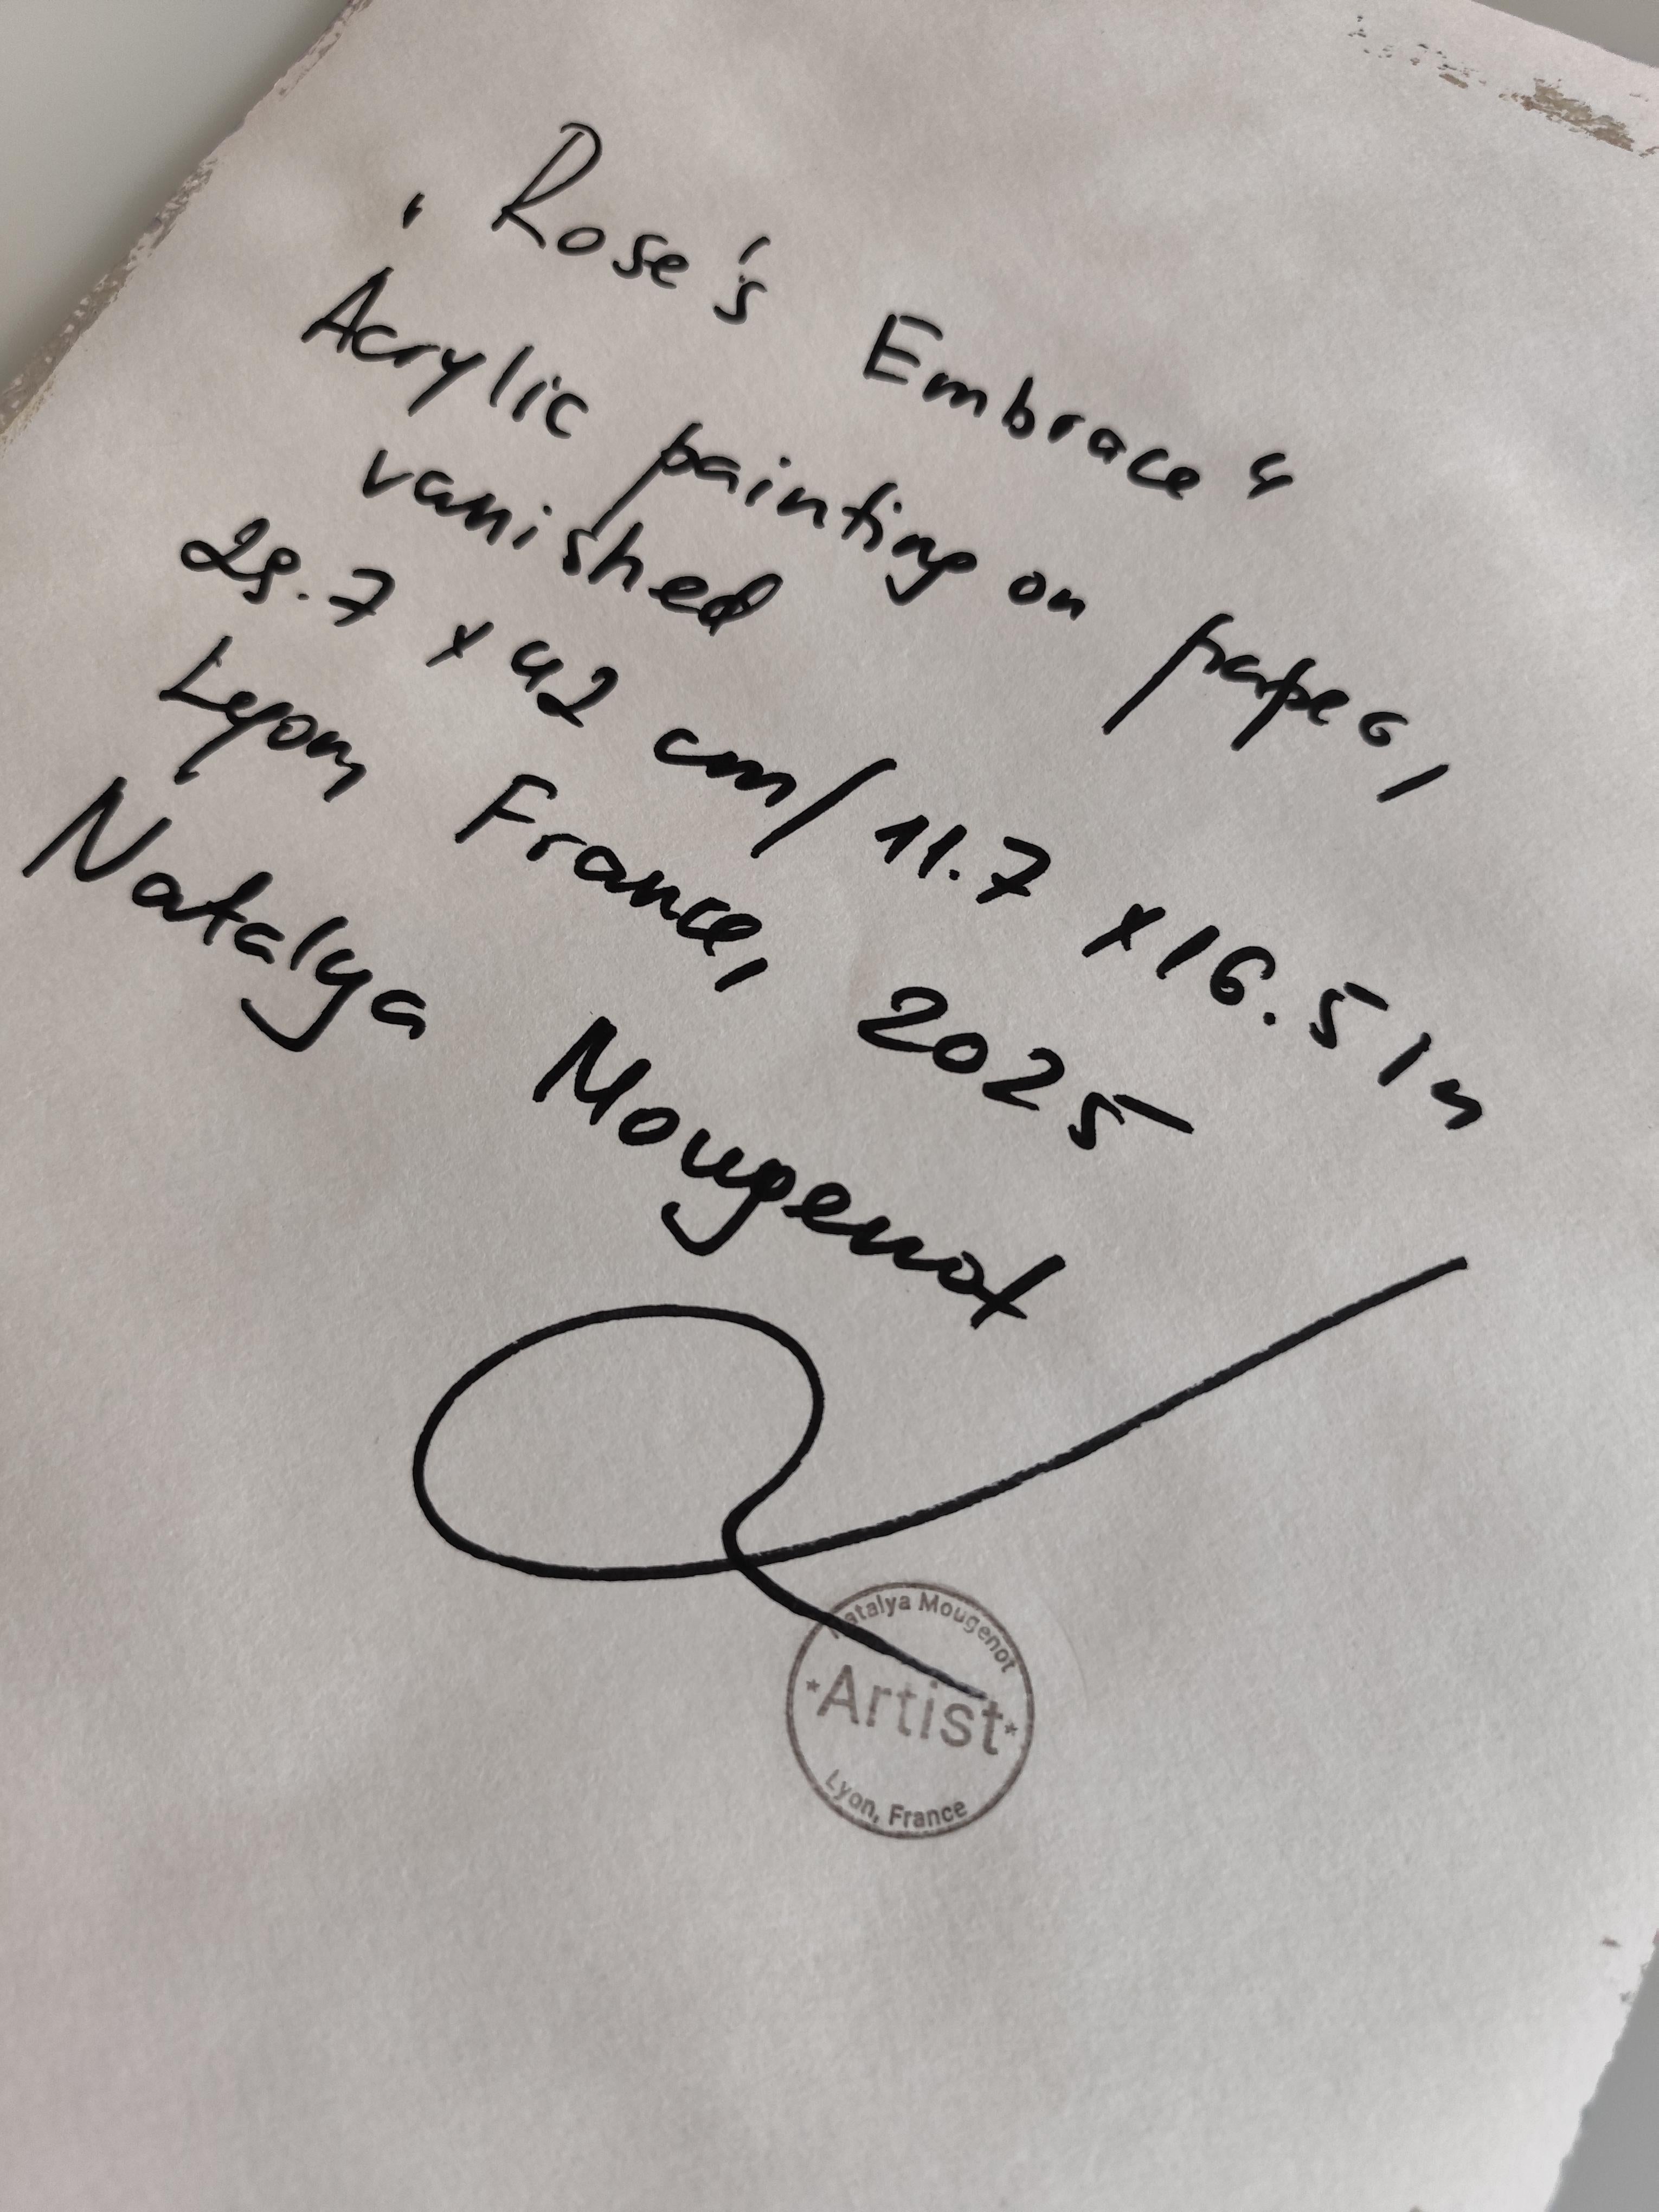 ' Rose's Embrace "
Acrylic painting on paper,
vanished
29.7 x 42 cm/11.7 x 16.5 in
Lyon, France, 2025
Natalya Mougenot
Natalya Mougenot
*Artist*
Lyon, France